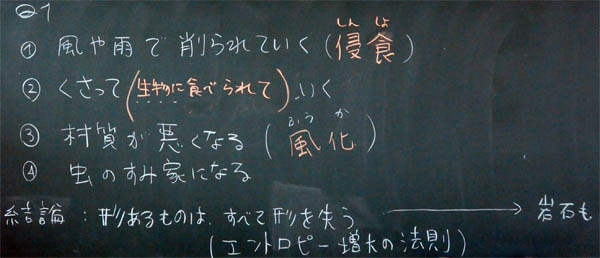 Q1
① 風や雨で削られていく(侵食)
しんしょ
② くさって(生物に食べられて)いく
③ 材質が悪くなる(風化)
ふうか
④ 虫のすみ家になる
結論:形あるものは、すべて形を失う → 岩石も
(エントロピー増大の法則)